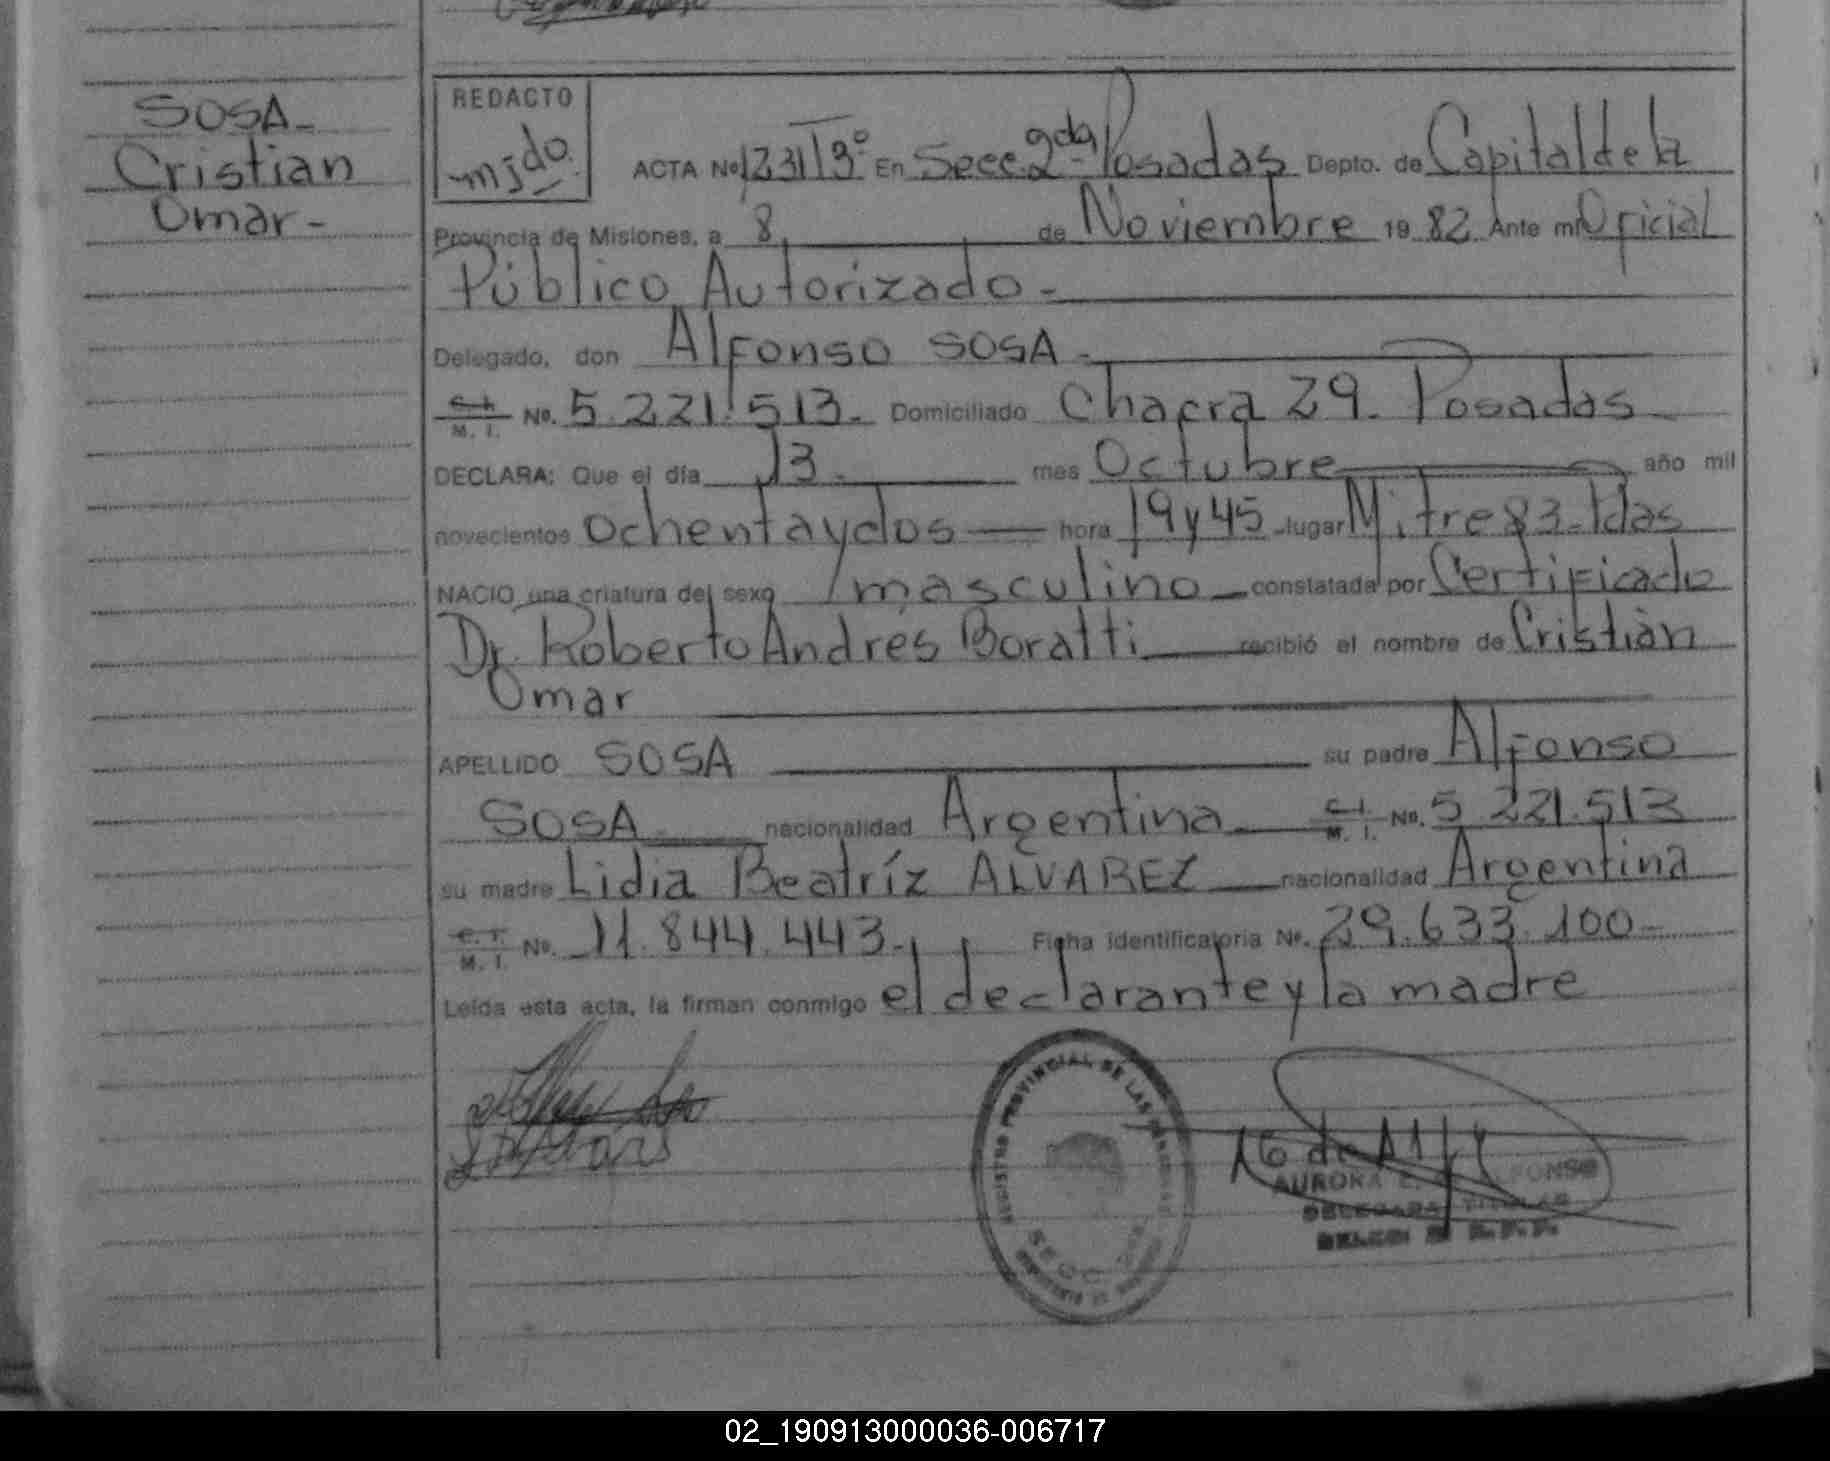 SOSA-
Cristian
Omar-
REDACTO
mjdo.
ACTA Nº 1231 T3º En Secc. 2da Posadas Depto. de Capital de la
Provincia de Misiones, a 8 de Noviembre 1982 Ante mi Oficial
Público Autorizado-
Delegado, don Alfonso SOSA-
C.I. M. I. Nº. 5.221.513- Domiciliado Chacra 29. Posadas
DECLARA: Que el día 13- mes Octubre año mil
novecientos ochentaydos hora 19 y 45 lugar Mitre 83-Pdas
NACIO una criatura del sexo masculino constatada por Certificado
Dr. Roberto Andrés Boratti recibió el nombre de Cristian
Omar
APELLIDO SOSA su padre Alfonso
SOSA nacionalidad Argentina C.I. M. I. Nº. 5.221.513
su madre Lidia Beatríz ALVAREZ nacionalidad Argentina
C.I. M. I. Nº. 11.844.443- Ficha identificatoria Nº. 29.633.100-
Leída esta acta, la firman conmigo el declarante y la madre
REGISTRO PROVINCIAL DE LAS PERSONAS
SECC. 2da.
AURORA E. ALFONSO
DELEGADA TITULAR
02_190913000036-006717